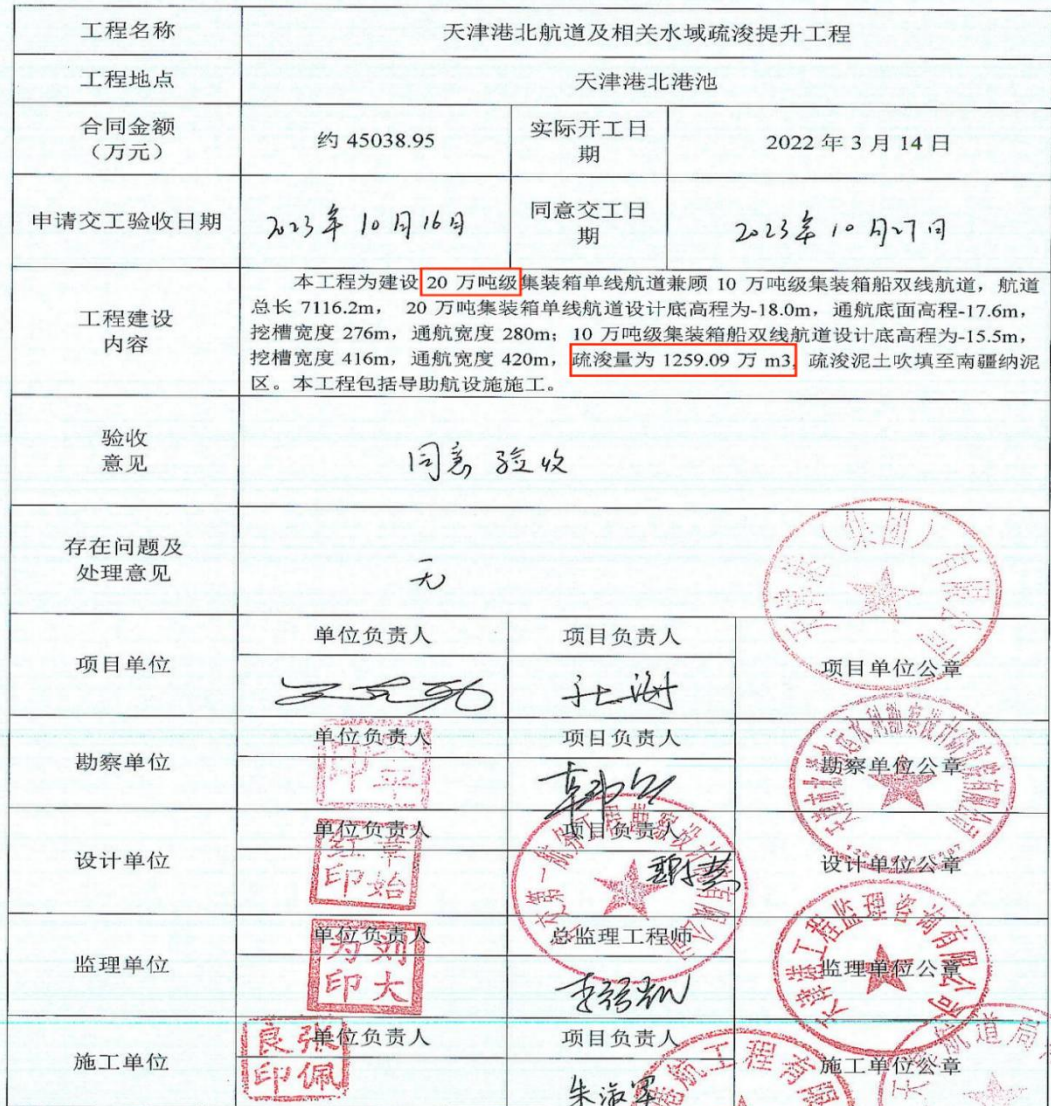 工程名称
天津港北航道及相关水域疏浚提升工程
工程地点
天津港北港池
合同金额
（万元）
约 45038.95
实际开工日
期
2022 年 3 月 14 日
申请交工验收日期
2023年10月16日
同意交工日
期
2023年10月27日
工程建设
内容
本工程为建设 20 万吨级集装箱单线航道兼顾 10 万吨级集装箱船双线航道，航道
总长 7116.2m， 20 万吨集装箱单线航道设计底高程为-18.0m，通航底面高程-17.6m，
挖槽宽度 276m，通航宽度 280m；10 万吨级集装箱船双线航道设计底高程为-15.5m，
挖槽宽度 416m，通航宽度 420m，疏浚量为 1259.09 万 m3，疏浚泥土吹填至南疆纳泥
区。本工程包括导助航设施施工。
验收
意见
同意验收
存在问题及
处理意见
无
天津港（集團）有限公司
项目单位
单位负责人
项目负责人
项目单位公章
勘察单位
单位负责人
项目负责人
勘察单位公章
设计单位
单位负责人
项目负责人
设计单位公章
监理单位
单位负责人
刘大
为印
总监理工程师
监理单位公章
天津港工程监理咨询有限公司
施工单位
单位负责人
张佩
良印
项目负责人
施工单位公章